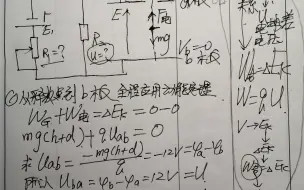 E₁
R=?
R=
u=?
E
F电
mg
b板
V_b=0
①从释放点到b板全程应用动能定理
W_G+W电=ΔE_K=0-0
mg(h+d)+qU_ab=0
求U_ab=-mg(h+d)/q=-12V=φ_a-φ_b
所以U_ba=φ_b-φ_a=12V=U
W=ΔE_K
W=qU
V→E_K
ΔE_K